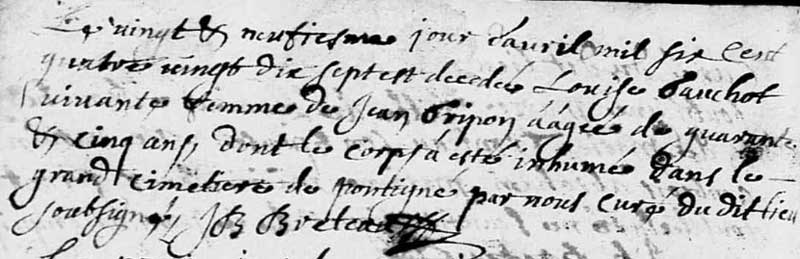 Le vingt & neufiesme jour d'avril mil six cent
quatre vingt dix sept est decedée Louise Gauchot
vivante femme de Jean Gripon aagée de quarante
& cinq ans, dont le corps a esté inhumé dans le
grand cimetiere de pontigné par nous curé du dit lieu
soubsigné, JB Breteau